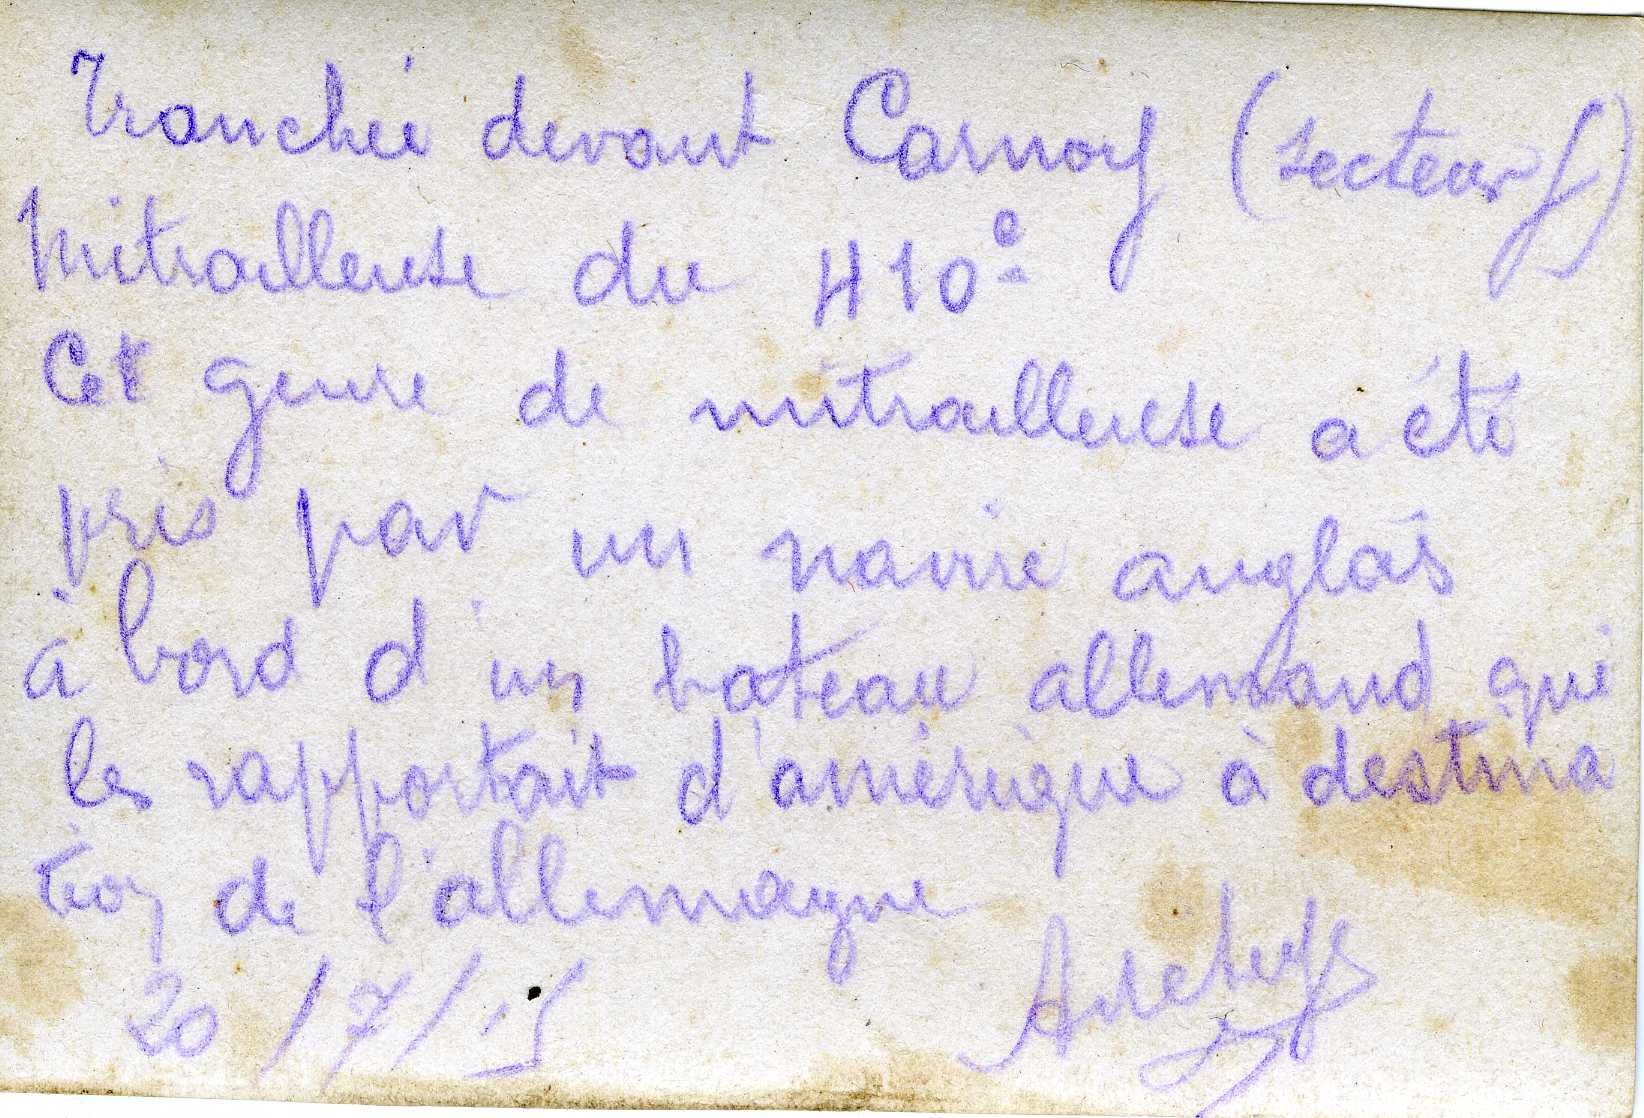 Tranchée devant Carnoy (secteur f)
Mitrailleuse du 410e
Cet genre de mitrailleuse a été
pris par un navire anglais
à bord d'un bateau allemand qui
les rapportait d'amérique à destina
tion de l'allemagne
20/7/15